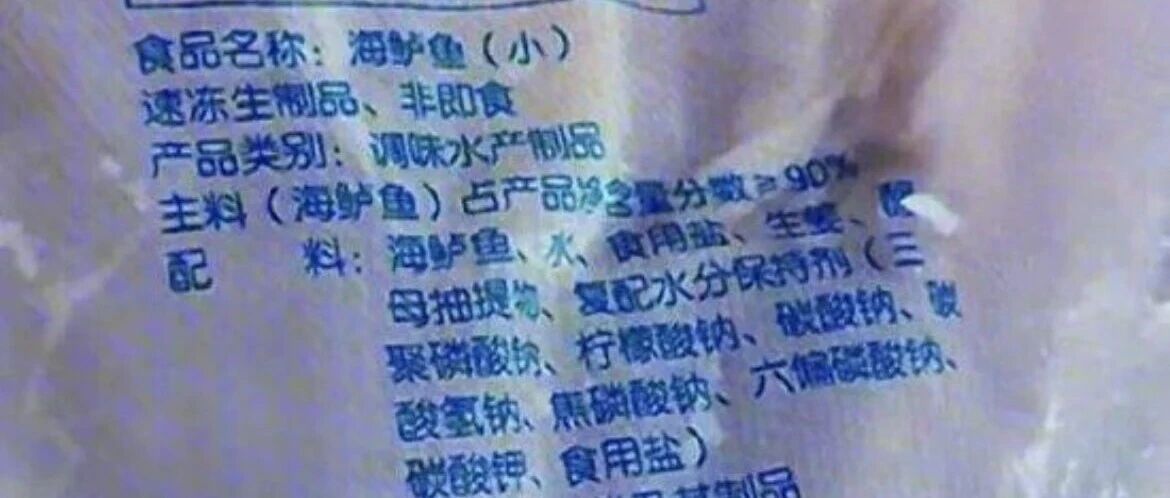 食品名称：海鲈鱼（小）
速冻生制品、非即食
产品类别：调味水产制品
主料（海鲈鱼）占产品净含量分数≥90%
配 料：海鲈鱼、水、食用盐、生姜、酵
母抽提物、复配水分保持剂（三
聚磷酸钠、柠檬酸钠、碳酸钠、碳
酸氢钠、焦磷酸钠、六偏磷酸钠、
碳酸钾、食用盐）
制品